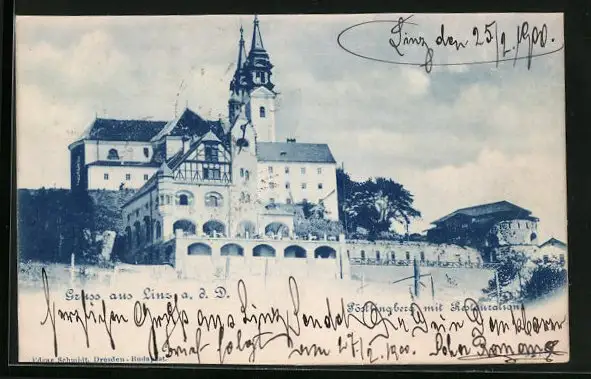 Linz den 25/2 1900.
Gruss aus Linz a. d. D.
Pöstlingberg mit Restauration
Herzlichen Gruß aus Linz sendet Dir Dein Dankbarer
Brief folgt am 27/2 1900.
Edgar Schmidt, Dresden-Budapest